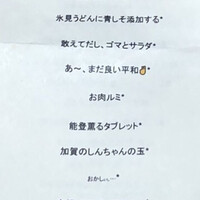 氷見うどんに青しそ添加する*
敢えてだし、ゴマとサラダ*
あ〜、まだ良い平和*
お肉ルミ*
能登薫るタブレット*
加賀のしんちゃんの玉*
おかし